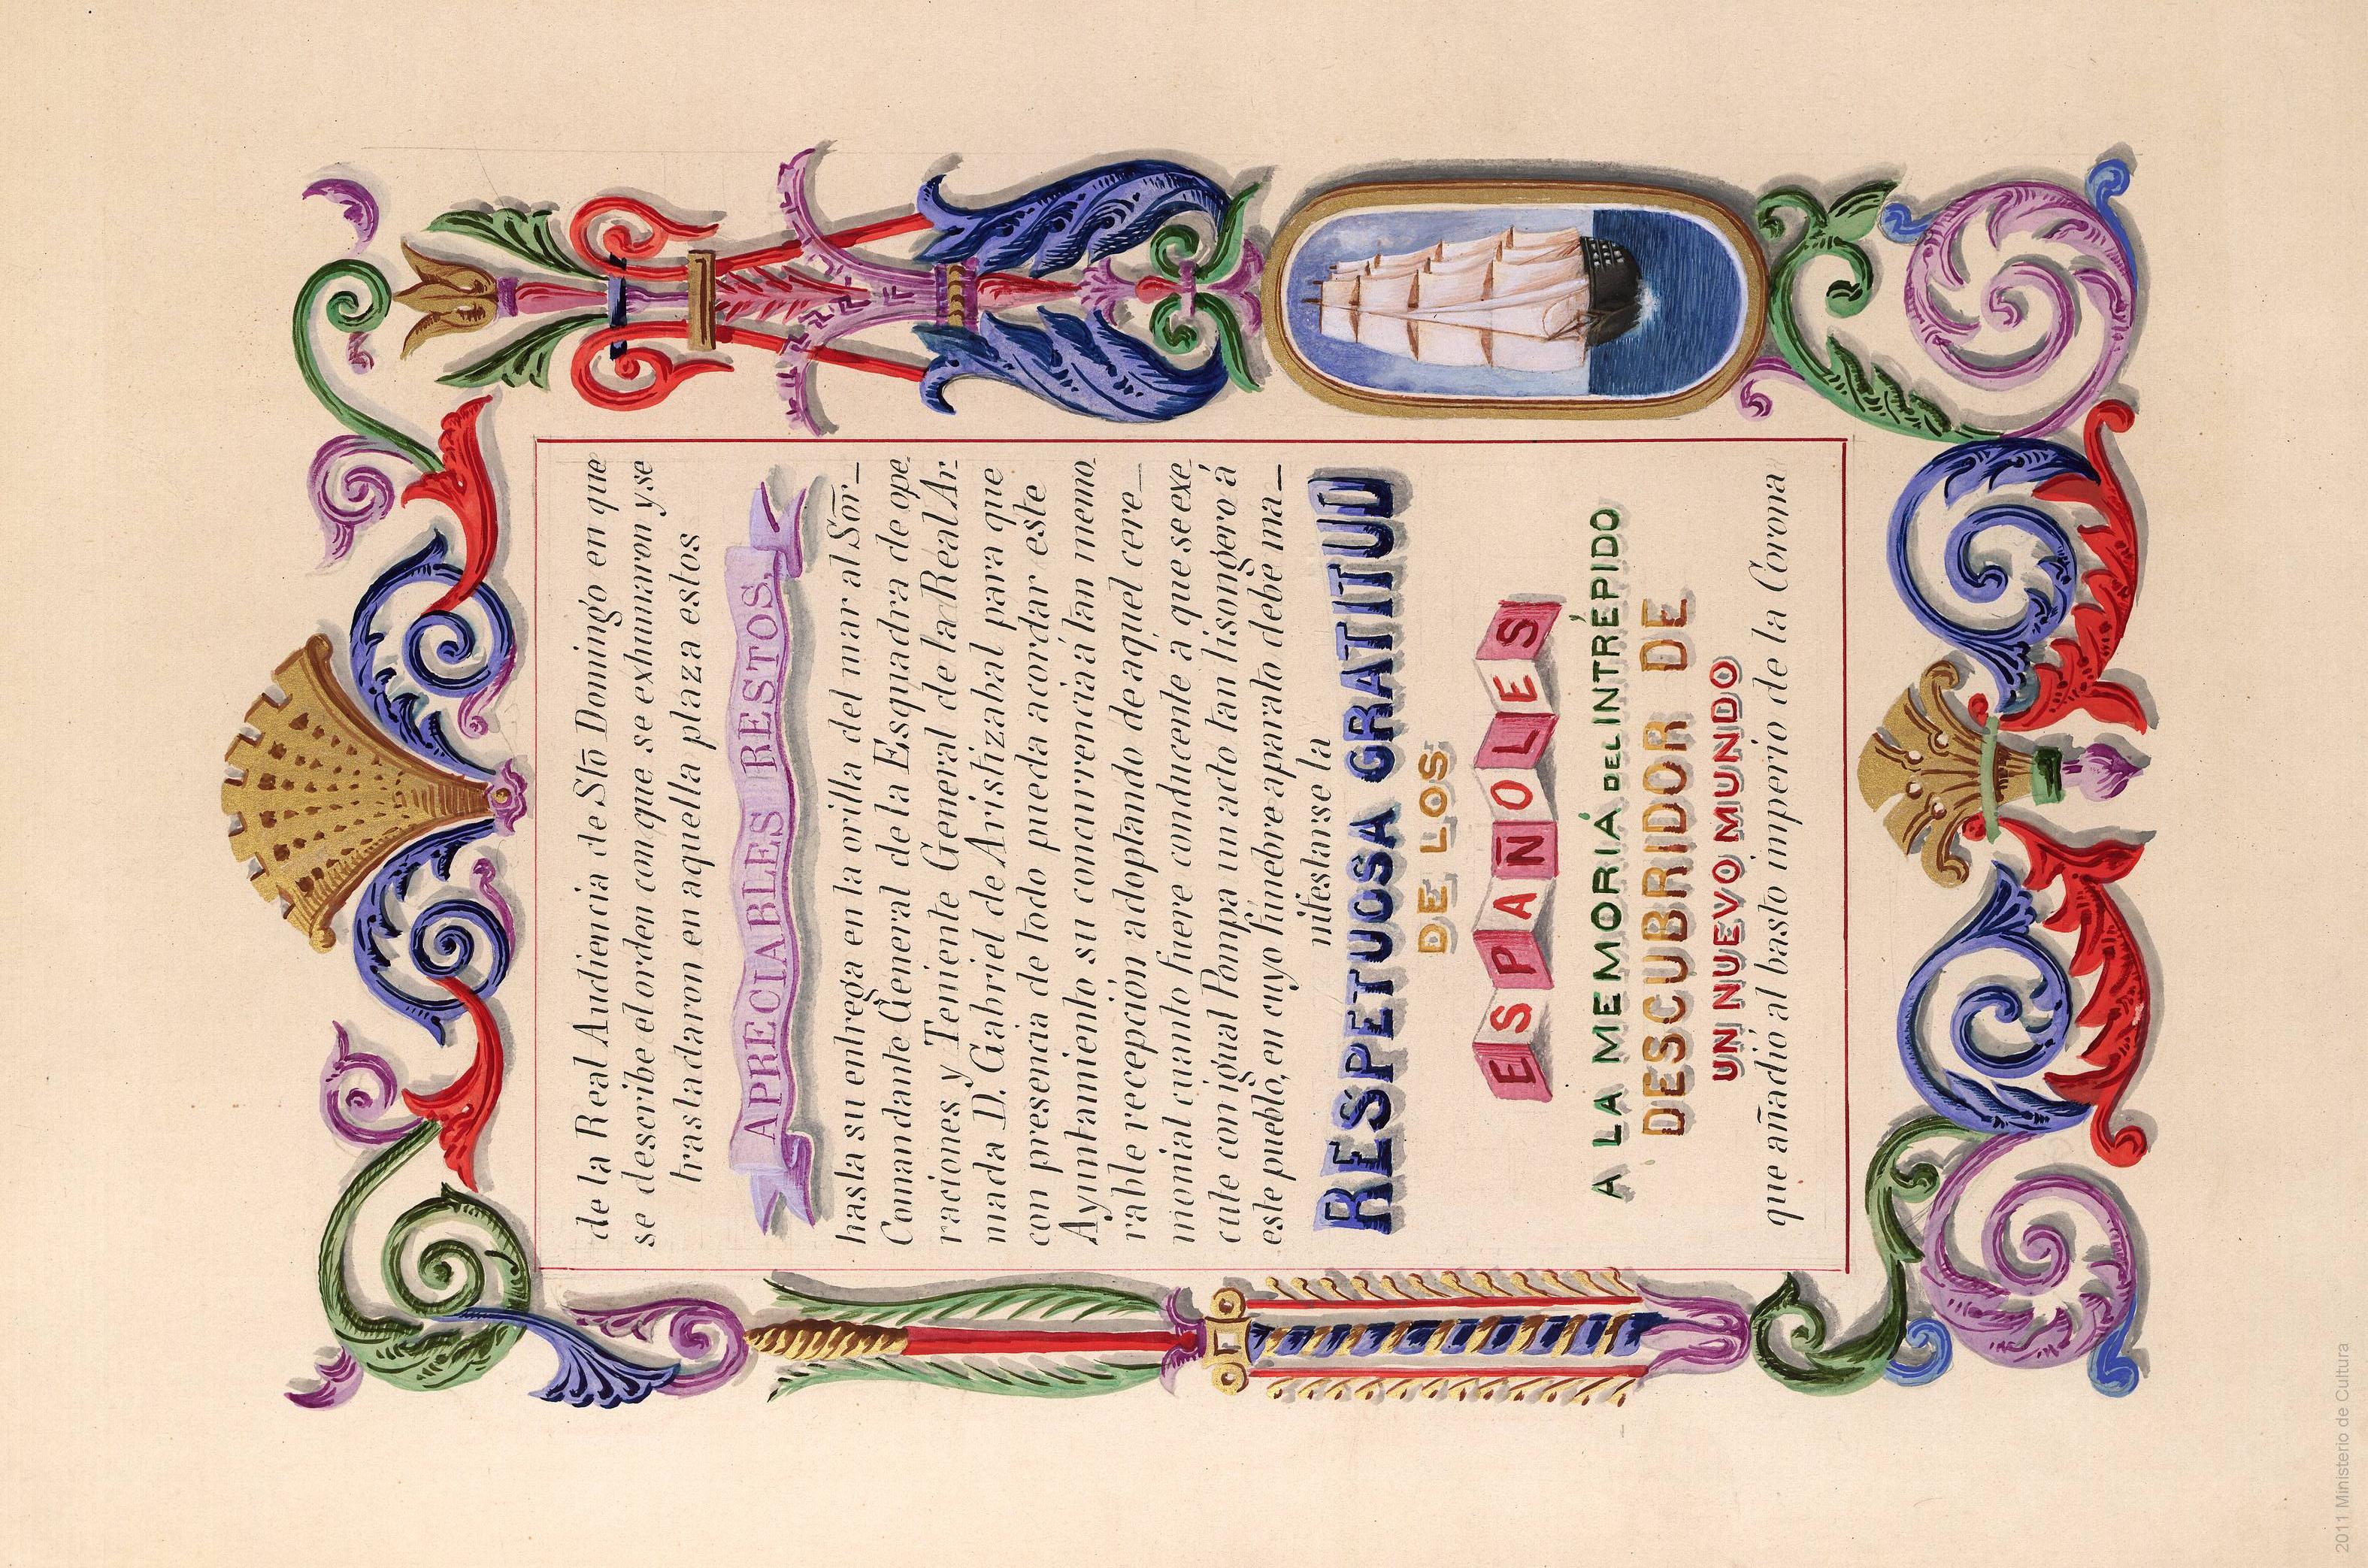 de la Real Audiencia de Sto Domingo en que
se describe el orden conque se exhumaron y se
trasladaron en aquella plaza estos
APRECIABLES RESTOS,
hasta su entrega en la orilla del mar al Sor_
Comandante General de la Esquadra de ope
raciones y Teniente General de la Real Ar
mada D. Gabriel de Aristizabal para que
con presencia de todo pueda acordar este
Ayuntamiento su concurrencia á tan memo
rable recepción adoptando de aquel cere_
monial cuanto fuere conducente a que se exe
cute con igual Pompa un acto tan lisongero á
este pueblo, en cuyo fúnebre aparato debe ma_
nifestarse la
RESPETUOSA GRATITUD
DE LOS
ESPAÑOLES
A LA MEMORIA DEL INTRÉPIDO
DESCUBRIDOR DE
UN NUEVO MUNDO
que añadió al basto imperio de la Corona
2011 Ministerio de Cultura